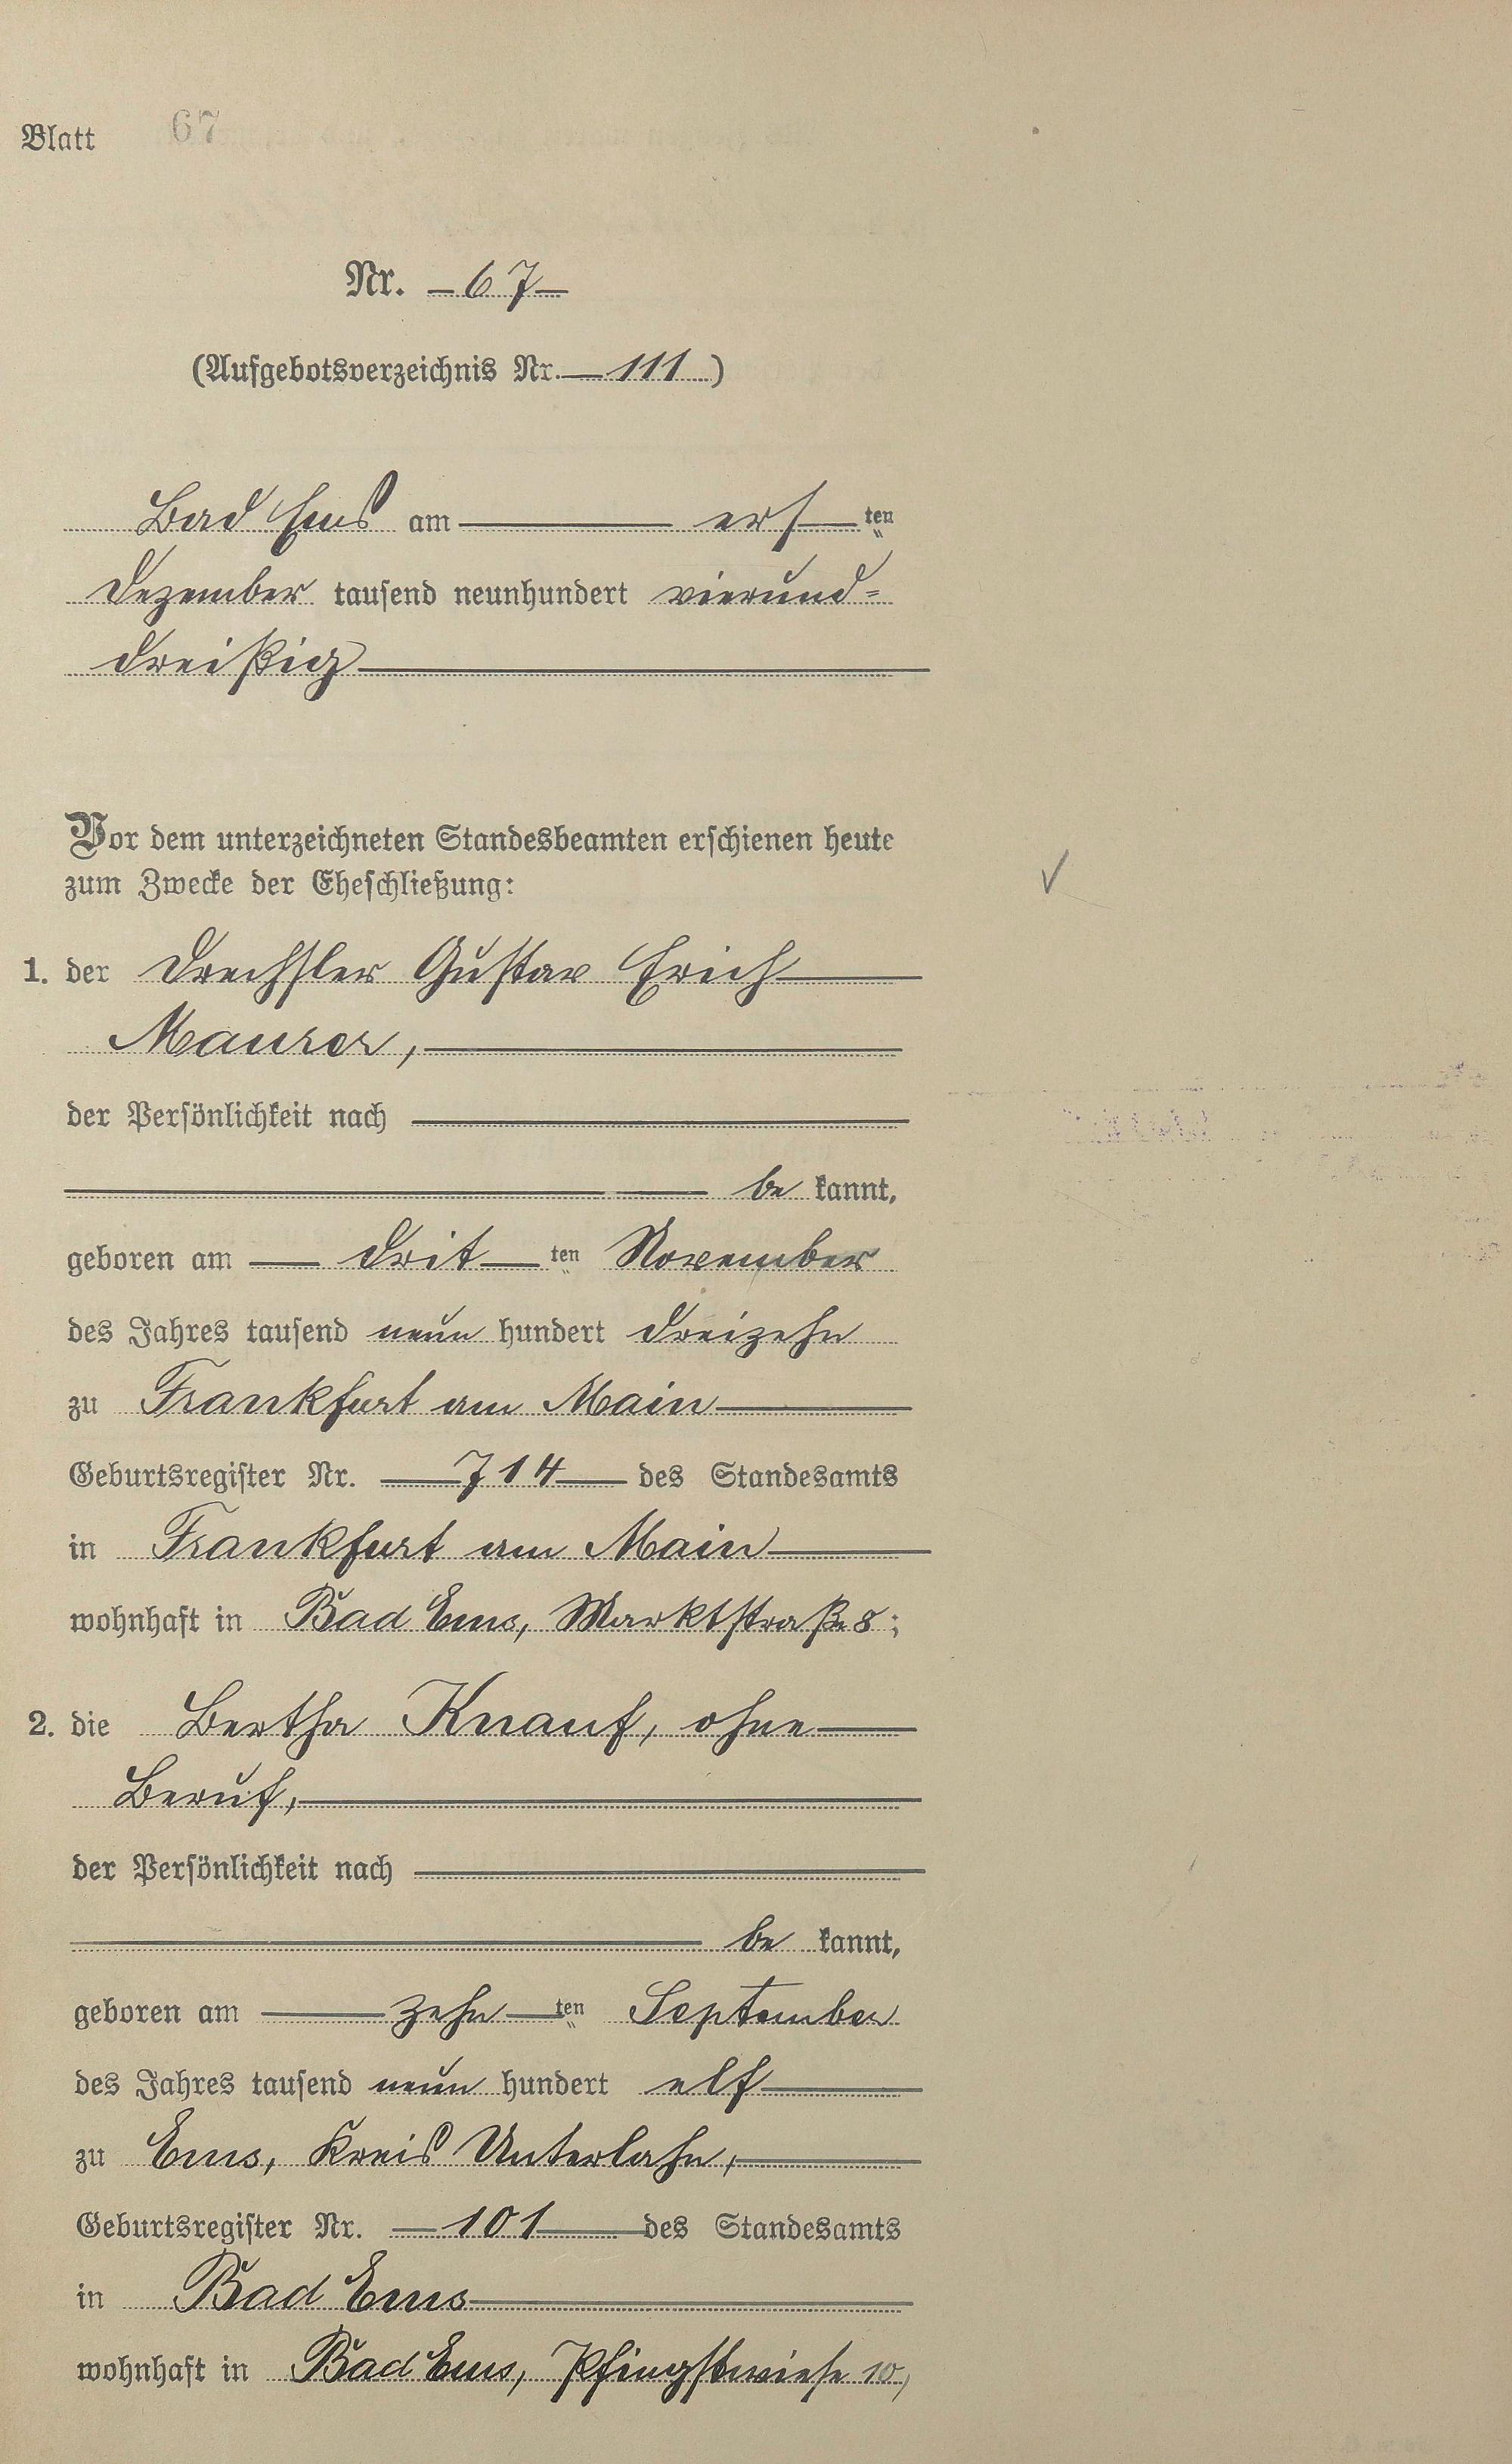 Blatt 67
Nr. 67
(Aufgebotsverzeichnis Nr. 111)
Bad Ems am ersten
Dezember tausend neunhundert vierund=
dreißig
Vor dem unterzeichneten Standesbeamten erschienen heute
zum Zwecke der Eheschließung:
1. der Drechsler Gustav Erich
Maurer,
der Persönlichkeit nach
be kannt,
geboren am dritten November
des Jahres tausend neun hundert dreizehn
zu Frankfurt am Main
Geburtsregister Nr. 714 des Standesamts
in Frankfurt am Main
wohnhaft in Bad Ems, Marktstraße 8;
2. die Bertha Knauf, ohne
Beruf,
der Persönlichkeit nach
be kannt,
geboren am zehnten September
des Jahres tausend neun hundert elf
zu Ems, Kreis Unterlahn,
Geburtsregister Nr. 101 des Standesamts
in Bad Ems
wohnhaft in Bad Ems, Pfingstwiese 10,